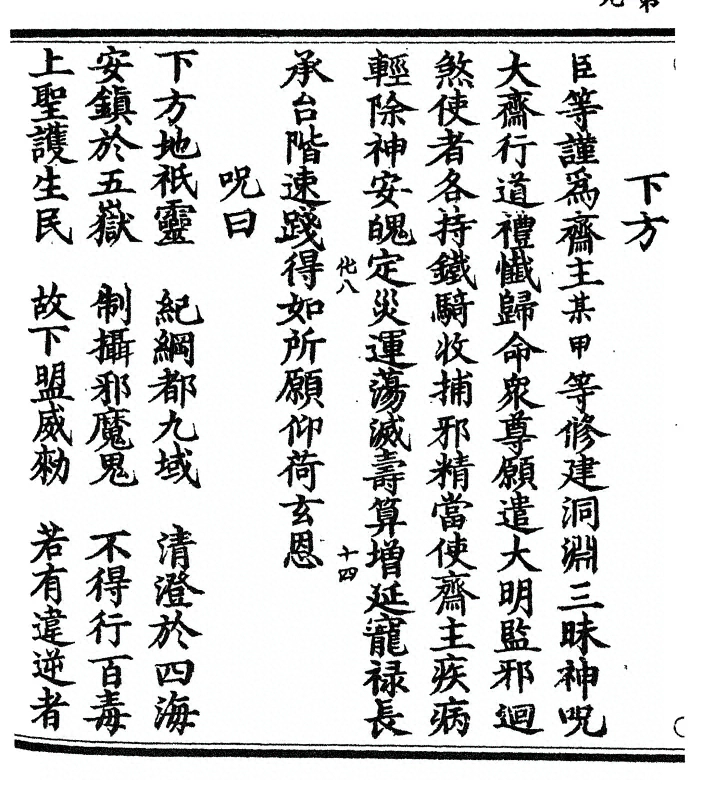 下方
臣等謹爲齋主某甲等修建洞淵三昧神呪
大齋行道禮懺歸命衆尊願遣大明監邪迴
煞使者各持鐵騎收捕邪精當使齋主疾病
輕除神安魄定災運蕩滅壽算增延寵禄長
化八
十四
承台階速踐得如所願仰荷玄恩
呪曰
下方地祇靈 紀綱都九域 清澄於四海
安鎮於五嶽 制攝邪魔鬼 不得行百毒
上聖護生民 故下盟威勑 若有違逆者